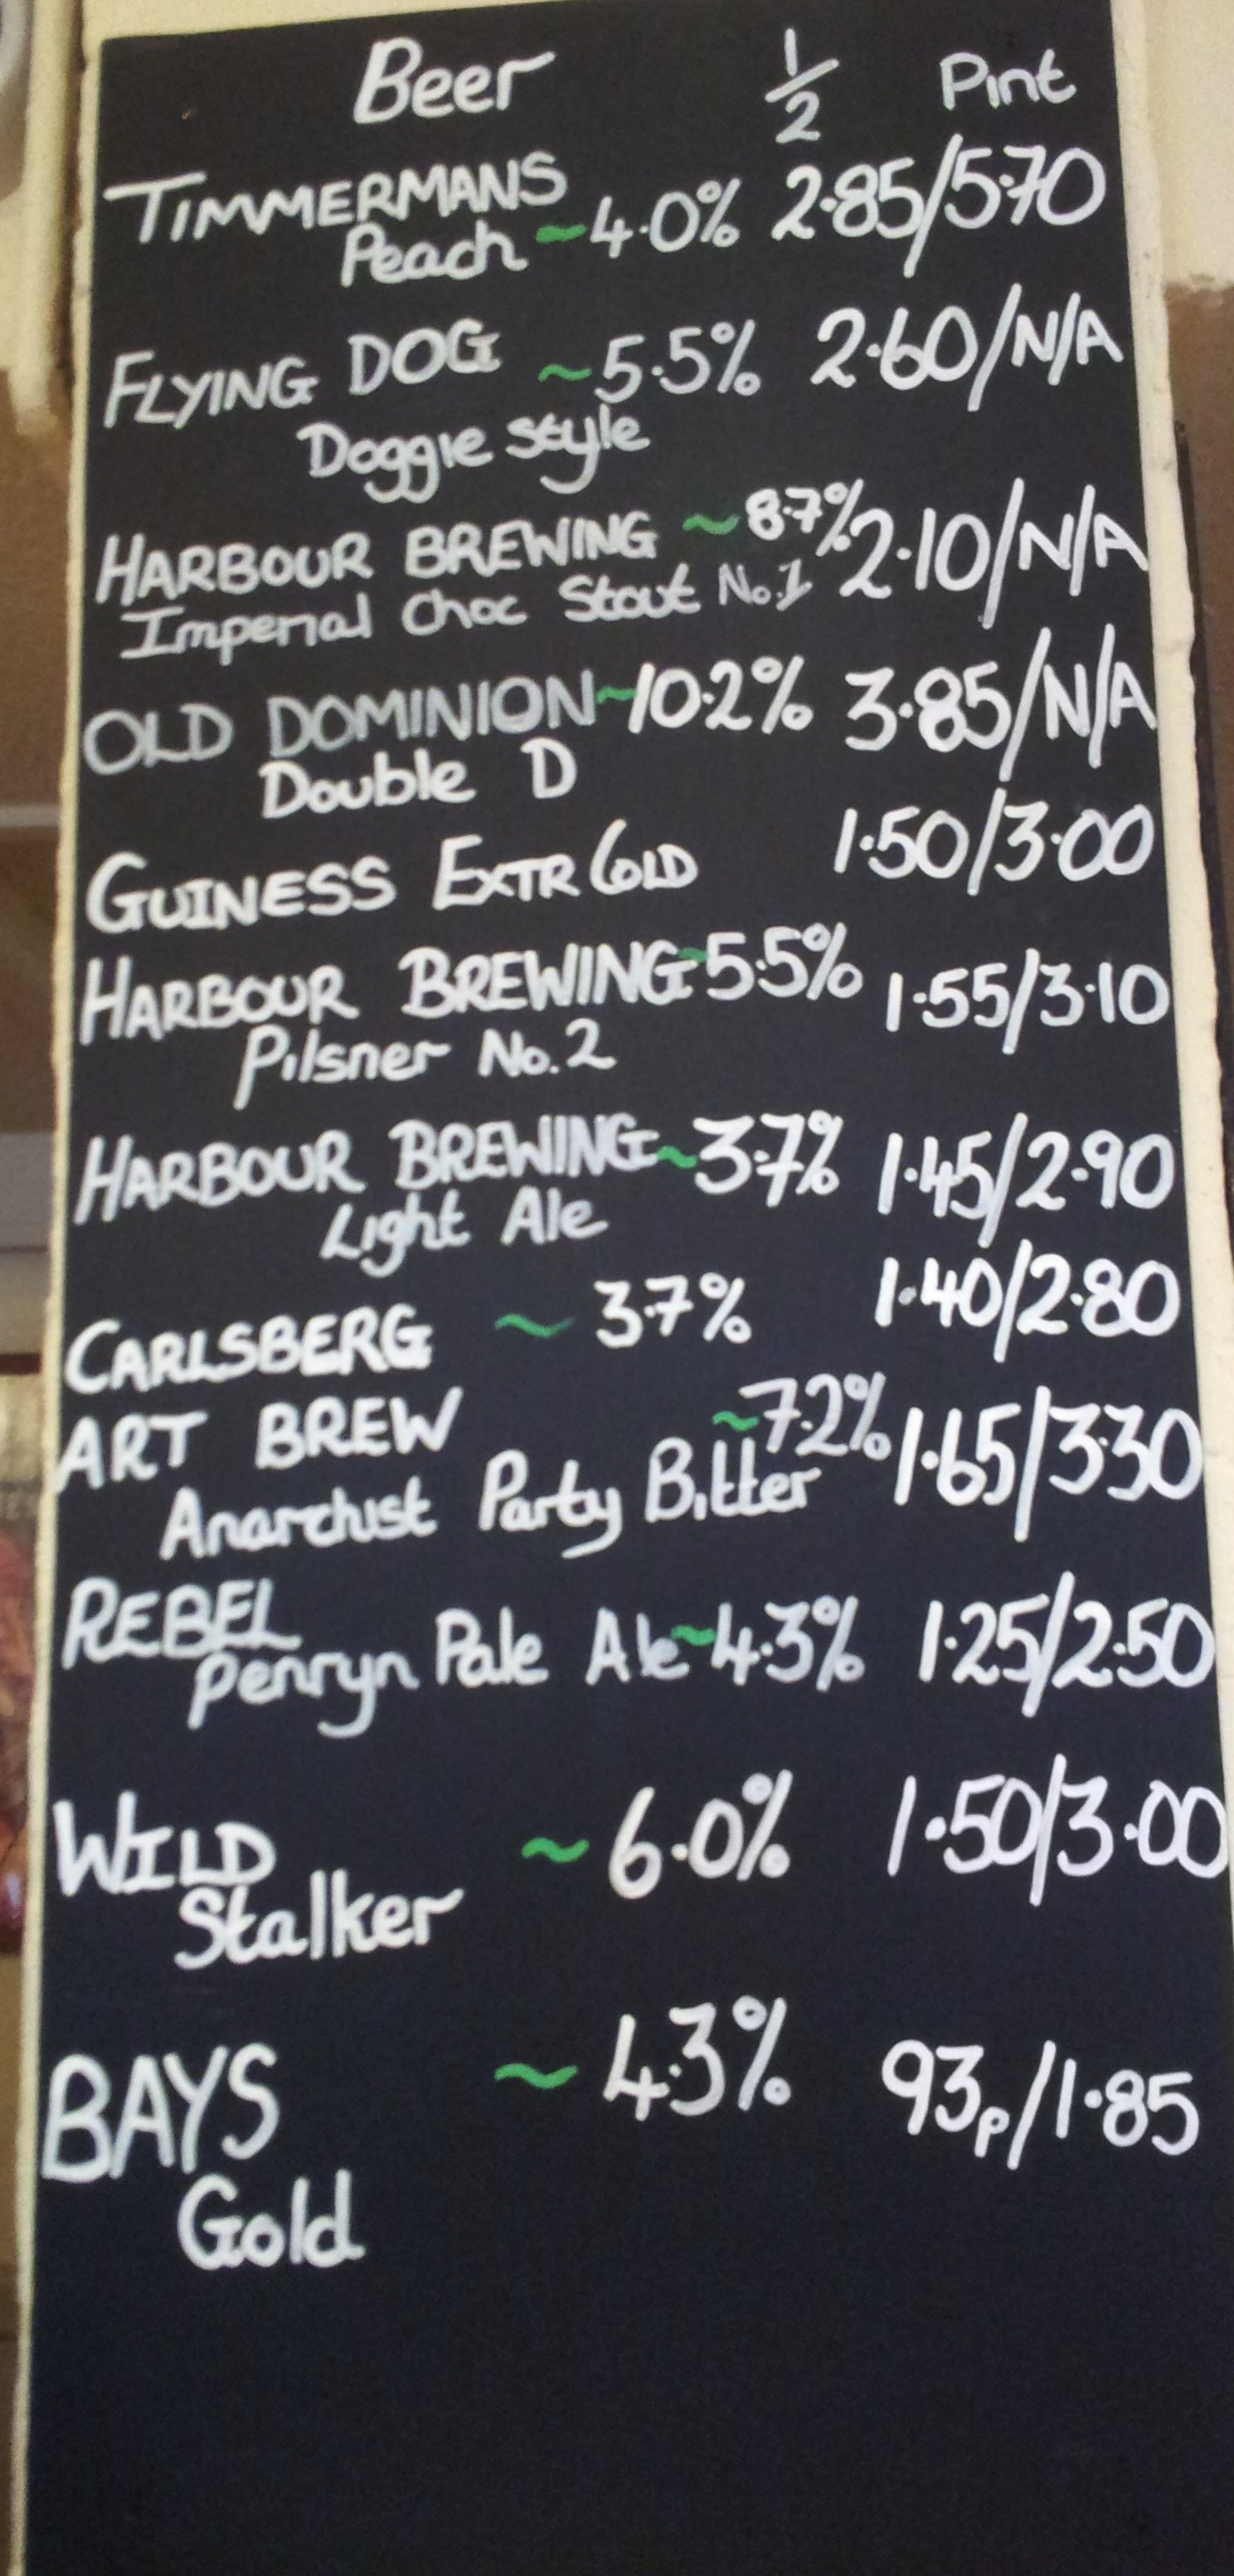 Beer 1/2 Pint
TIMMERMANS
Peach ~4.0% 2.85/5.70
FLYING DOG ~5.5% 2.60/N/A
Doggie Style
HARBOUR BREWING ~8.7% 2.10/N/A
Imperial Choc Stout No.1
OLD DOMINION ~10.2% 3.85/N/A
Double D
GUINESS EXTR COLD 1.50/3.00
HARBOUR BREWING ~5.5% 1.55/3.10
Pilsner No.2
HARBOUR BREWING ~3.7% 1.45/2.90
Light Ale
CARLSBERG ~ 3.7% 1.40/2.80
ART BREW ~7.2% 1.65/3.30
Anarchist Party Bitter
REBEL
Penryn Pale Ale ~4.3% 1.25/2.50
WILD ~ 6.0% 1.50/3.00
Stalker
BAYS ~ 4.3% 93p/1.85
Gold